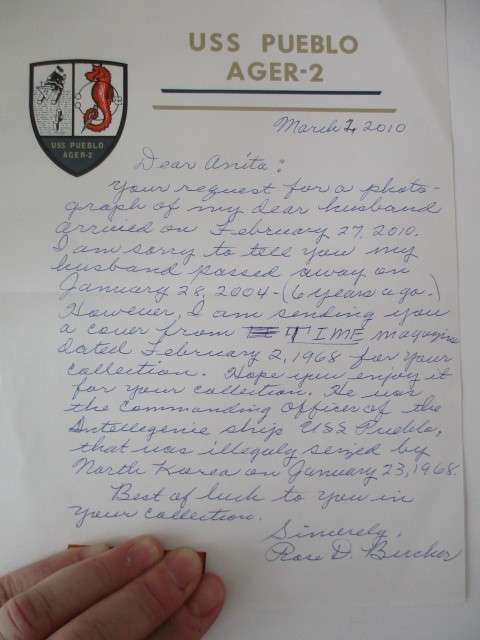 USS PUEBLO
AGER-2
USS PUEBLO
AGER-2
March 2, 2010
Dear Anita:
Your request for a photo-
graph of my dear husband
arrived on February 27, 2010.
I am sorry to tell you my
husband passed away on
January 28, 2004-(6 years ago.)
However, I am sending you
a cover from TIME magazine
dated February 2, 1968 for your
collection. Hope you enjoy it
for your collection. He was
the commanding officer of the
Intelligence ship USS Pueblo,
that was illegaly seized by
North Korea on January 23, 1968.
Best of luck to you in
your collection.
Sincerely,
Rose D. Bucher